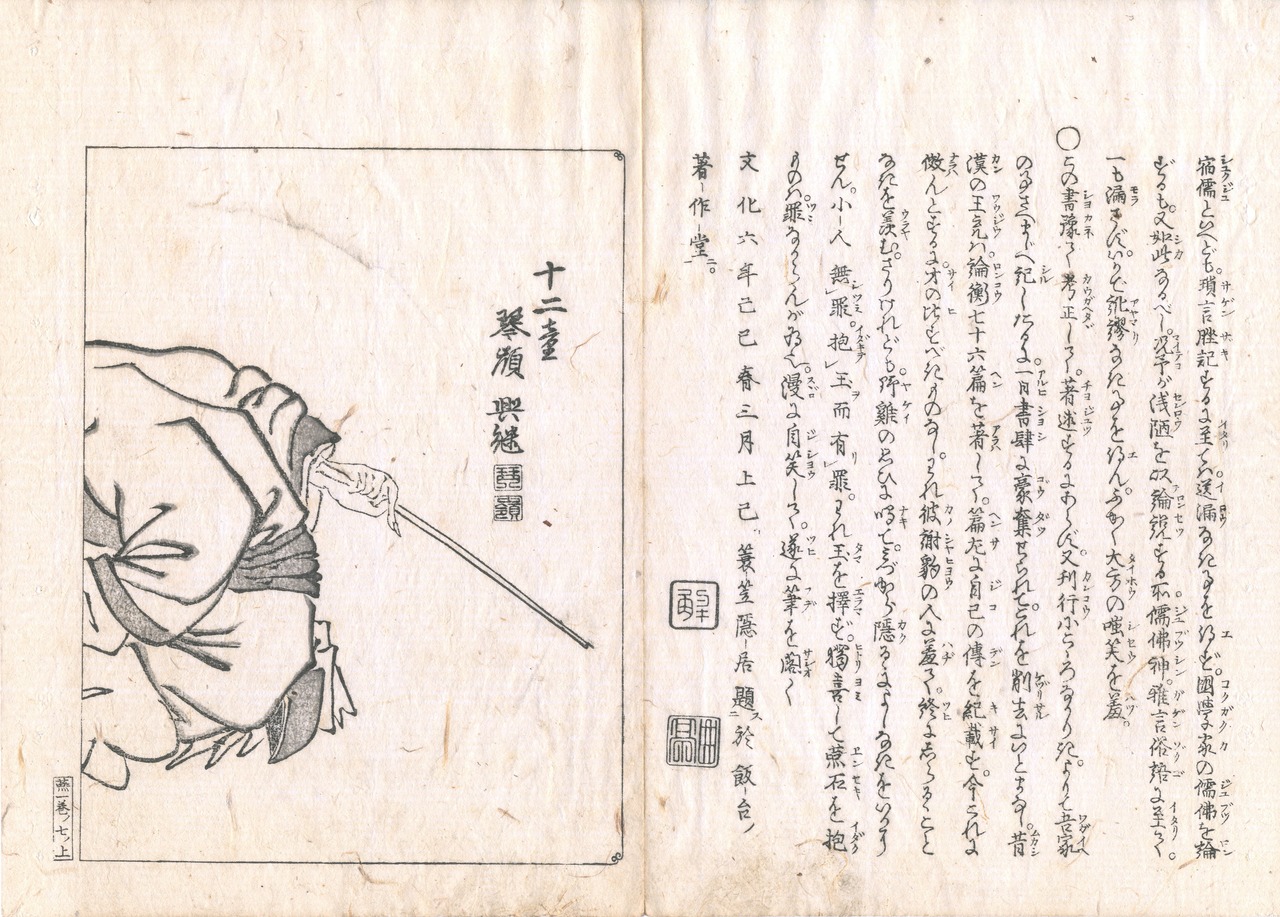 宿儒といへども。瑣言脞記するに至ては送漏なきことを得ず。國学家の儒佛を論
ずるも。又如此なるべし。况予が浅陋を以。論説する所。儒佛神。雅言俗語に至りて。
一も漏さず。いかで紕繆なきことを得ん。ふかく大方の嗤笑を羞。
○この書豫て考正して。著述するにあらず。又刊行小こゝろなかりき。よりて吾家
のことさへに記しゝを。一日書肆に豪奪せられて。これを削去にいとまなき。昔
漢の王充は論衡七十六篇を著して。篇尾に自己の傳を紀載す。今これに
傚んとするに。才の比すべきものなし。われ彼謝豹の人に羞て。終にしらるゝこと
なきを羨む。さりけれども。野雞の
せん。小人無罪。抱玉而有罪。われ玉を擇ず。獨喜して燕石を抱
ものは。罪なからんが為に。漫に自笑して。遂に筆を閣く
文化六年己巳春三月上巳 簑笠隱居題於飯台ノ
著作堂ニ。
十二童
琴嶺興継
琴嶺
燕一巻ノ七ノ上